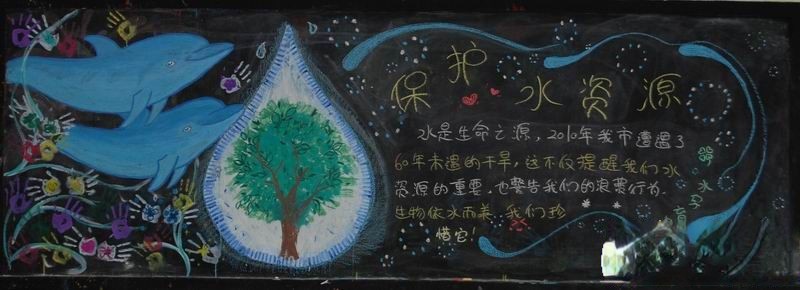 保护水资源
水是生命之源，2010年我市遭遇了
60年未遇的干旱，这不仅提醒我们水
资源的重要，也警告我们的浪费行为.
生物依水而养，我们珍
惜它！
水孕育